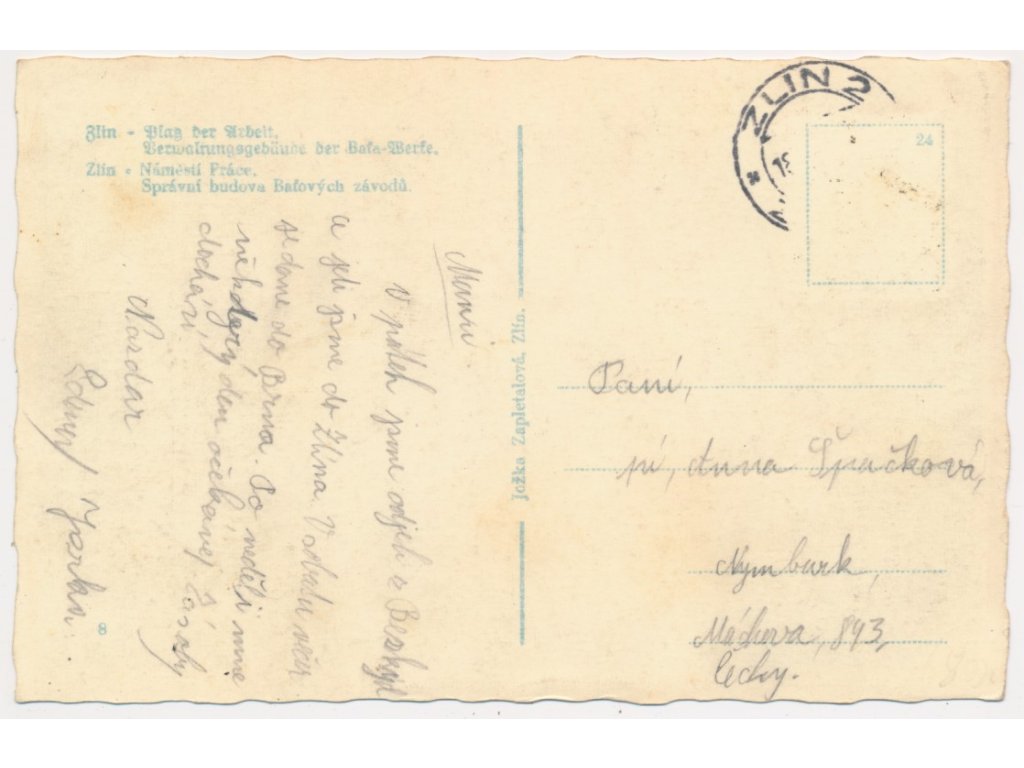 Zlin - Platz der Arbeit,
Verwaltungsgebäude der Bafa-Werke.
Zlín - Náměstí Práce,
Správní budova Baťových závodů.
Mami
V pátek jsme odjeli z Beskyd
a jeli jsme do Zlína. V sobotu večer
jedeme do Brna. Po neděli mne
některý den očekávej. Zásoby
dochází,
Nazdar
Jarka.
8
Jožka Zapletalová, Zlín.
ZLIN 2
24
Paní,
pí, Anna Špačková,
Nymburk,
Máchova, 893,
Čechy.